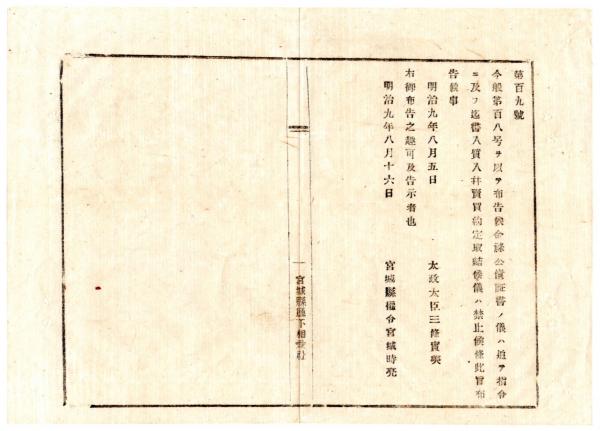 第百九號
今般第百八号ヲ以テ布告候金祿公債証書ノ儀ハ追テ指令
ニ及フ迄書入質入幷賣買約定取結候儀ハ禁止候條此旨布
告候事
明治九年八月五日
太政大臣三條實美
右御布告之趣可及告示者也
明治九年八月十六日
宮城縣權令宮城時亮
宮城縣